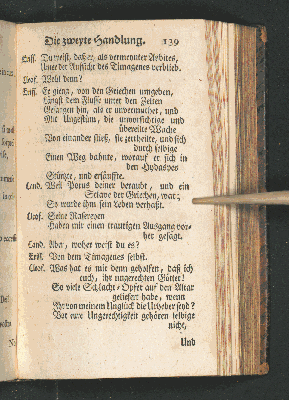 Die zweyte Handlung. 139
Eriss. Du weist, daß er, als vermeynter Arbites,
Unter der Aufsicht des Timagenes verblieb.
Cleof. Wohl denn?
Eriss. Er gieng, von den Griechen umgeben,
Längst dem Flusse unter den Zelten
Gefangen hin, als er unvermuthet, und
Mit Ungestüm, die unvorsichtige und
übereilte Wache
Von einander stieß, sie zertheilte, und sich
durch selbige
Einen Weg bahnte, worauf er sich in
den Hydaspes
Stürzte, und ersäufte.
Cand. Weil Porus deiner beraubt, und ein
Sclave der Griechen, war;
So wurde ihm sein Leben verhaßt.
Cleof. Seine Rasereyen
Haben mir einen traurigen Ausgang vor-
her gesagt.
Cand. Aber, woher weist du es?
Eriss. Von dem Timagenes selbst.
Cleof. Was hat es mir denn geholfen, daß ich
euch, ihr ungerechten Götter!
So viele Schlacht-Opfer auf den Altar
geliefert habe, wenn
Ihr von meinem Unglück die Urheber seyd?
Vor eure Ungerechtigkeit gehören selbige
nicht,
Und